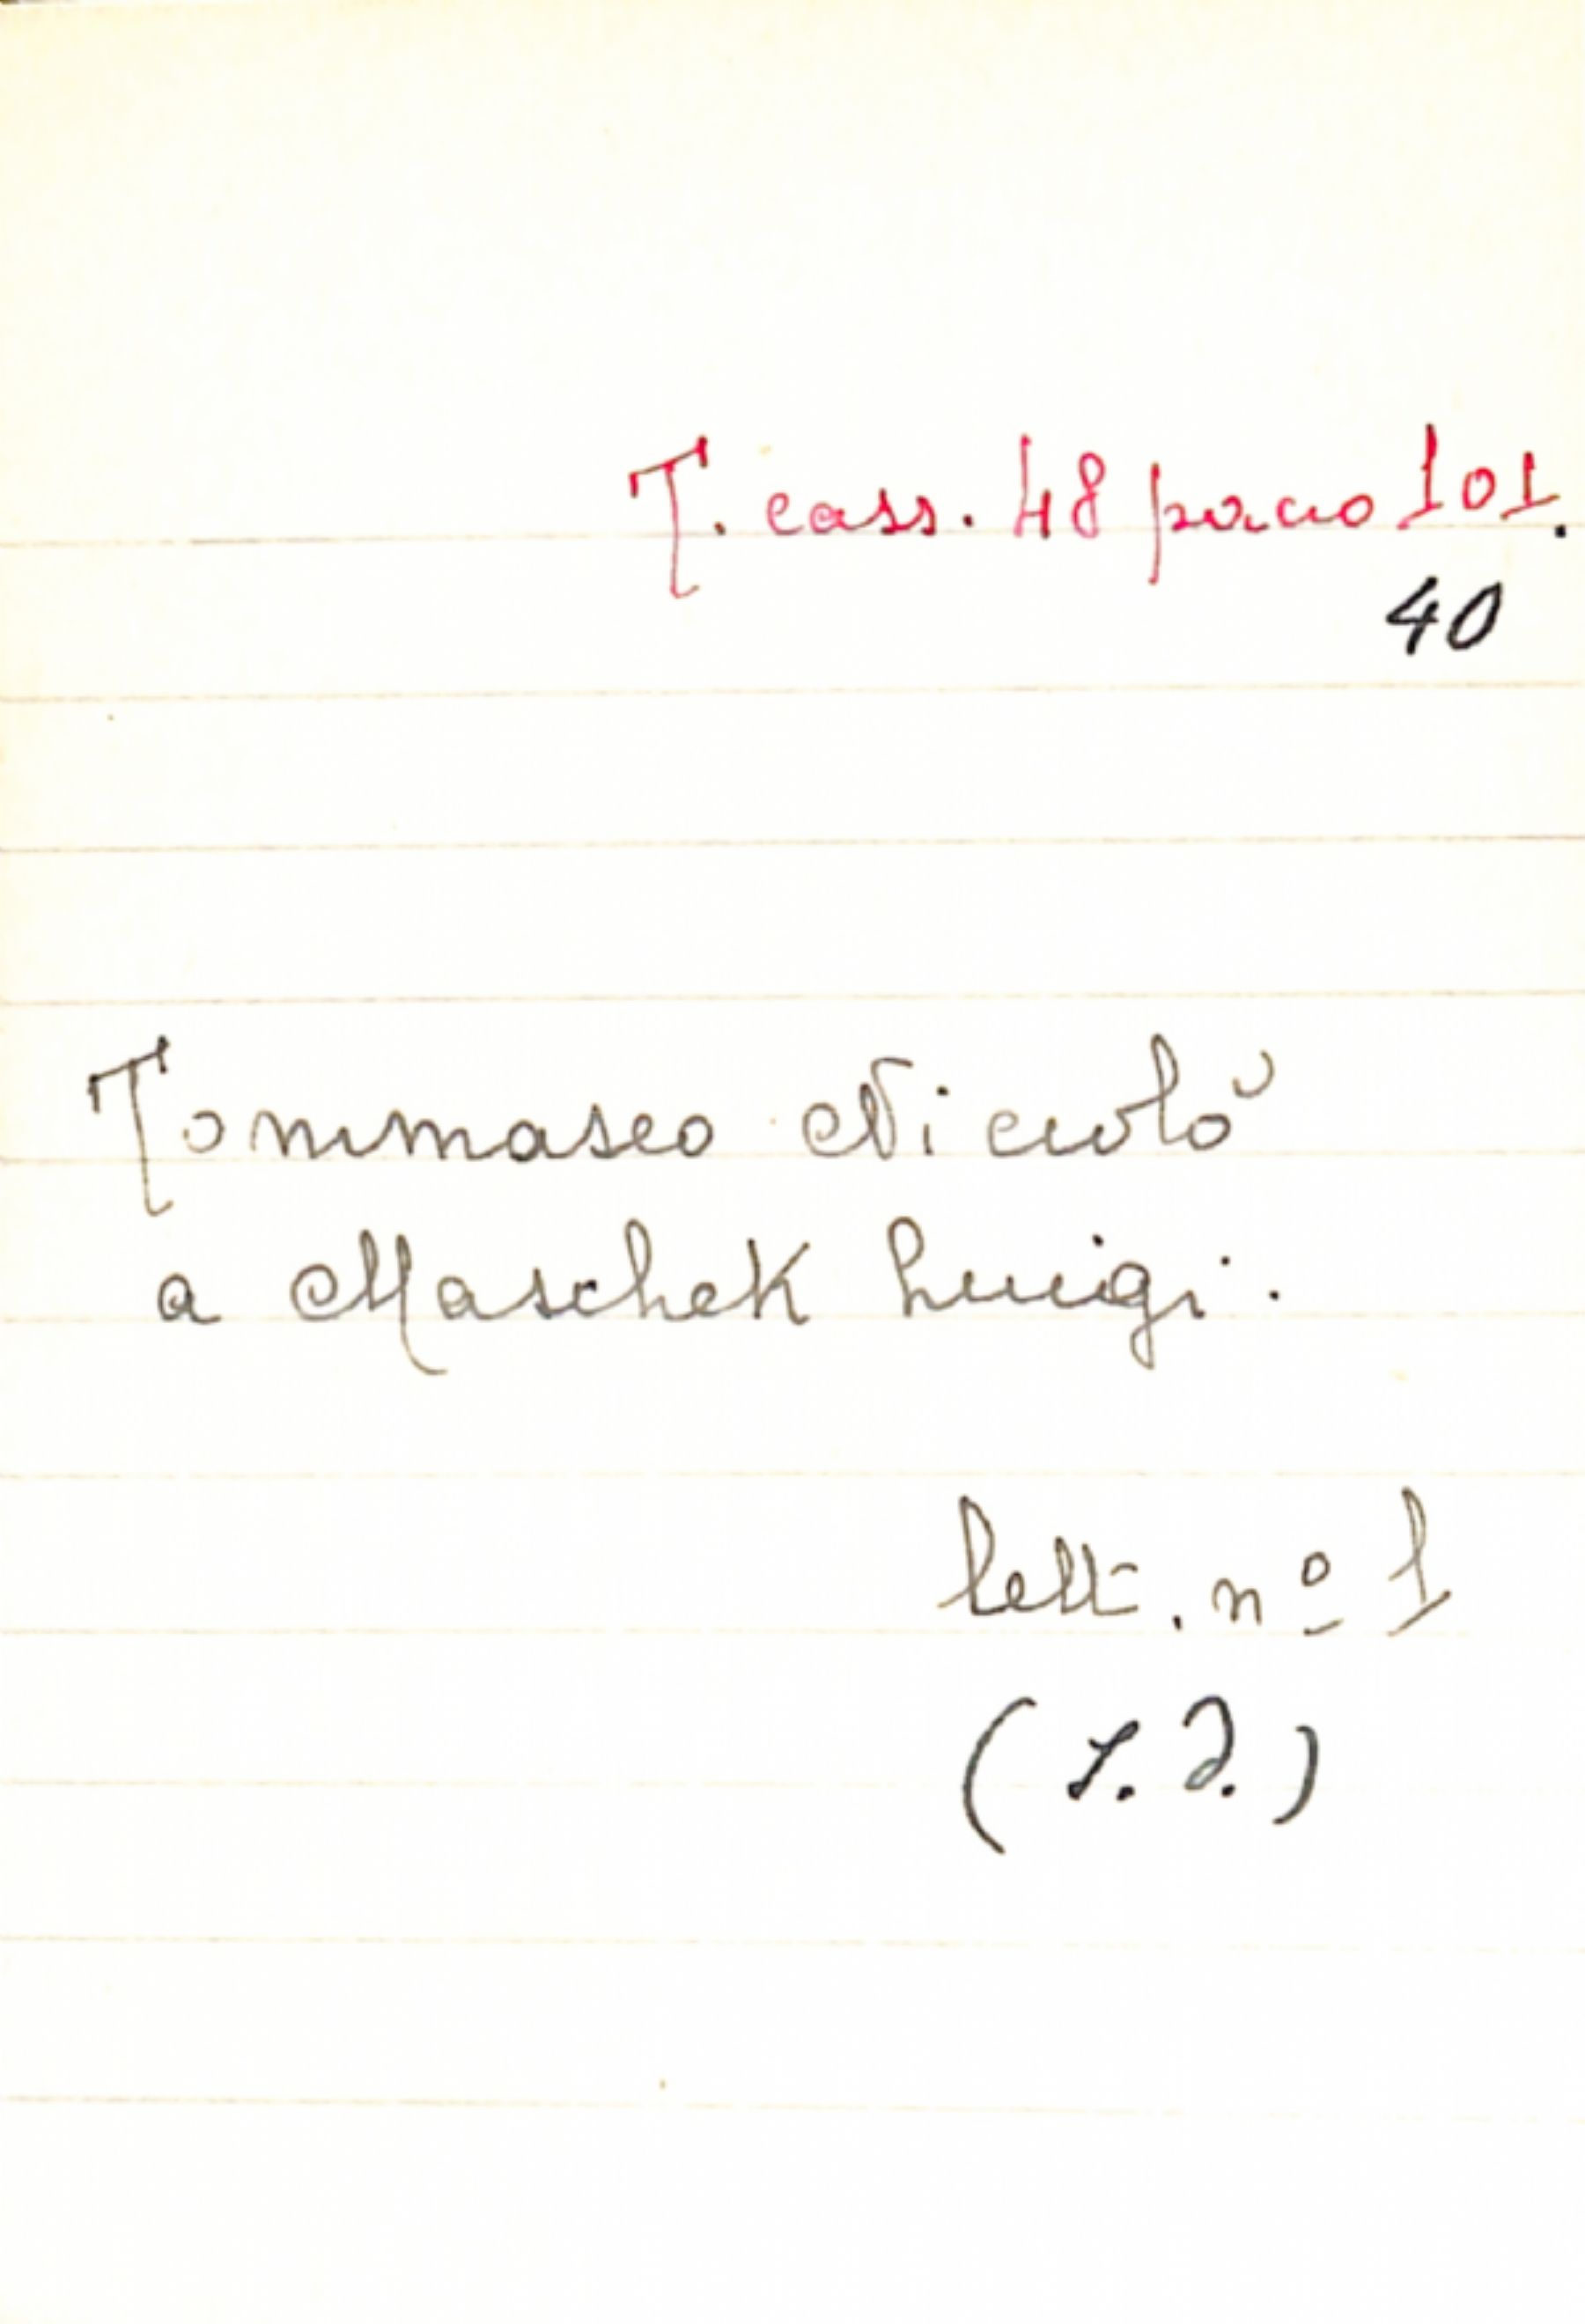 T. cass. 48 pacco 101.
40
Tommaseo Niccolò
a Maschek Luigi.
lett. nº 1
(s. d.)